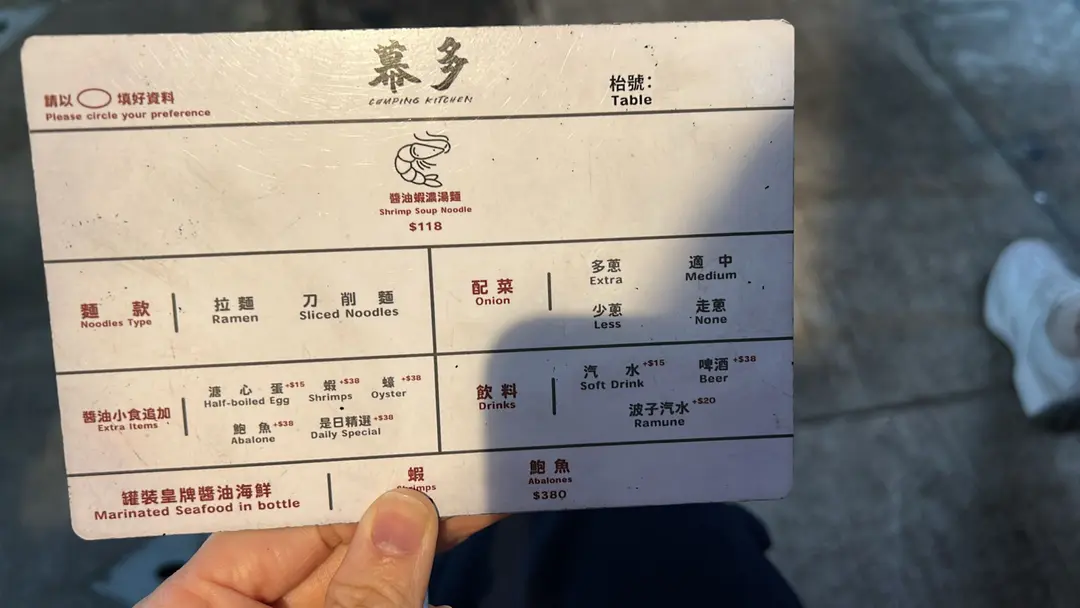 幕多
CAMPING KITCHEN
請以 填好資料
Please circle your preference
枱號：
Table
醬油蝦濃湯麵
Shrimp Soup Noodle
$118
麵款
Noodles Type
拉麵
Ramen
刀削麵
Sliced Noodles
配菜
Onion
多蔥
Extra
適中
Medium
少蔥
Less
走蔥
None
醬油小食追加
Extra Items
溏心蛋 +$15
Half-boiled Egg
蝦 +$38
Shrimps
蠔 +$38
Oyster
鮑魚 +$38
Abalone
是日精選 +$38
Daily Special
飲料
Drinks
汽水 +$15
Soft Drink
啤酒 +$38
Beer
波子汽水 +$20
Ramune
罐裝皇牌醬油海鮮
Marinated Seafood in bottle
蝦
Shrimps
鮑魚
Abalones
$380